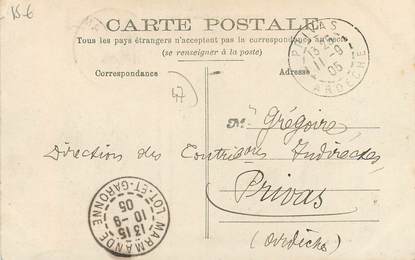 15-6
CARTE POSTALE
Tous les pays étrangers n'acceptent pas la correspondance au recto
(se renseigner à la poste)
Correspondance
Adresse
PRIVAS
11-9
05
ARDÈCHE
47
Mr Grégoire
Direction des Contrions Indirectes
Privas
(Ardèche)
MARMANDE
13 15
10-9
05
LOT-ET-GARONNE